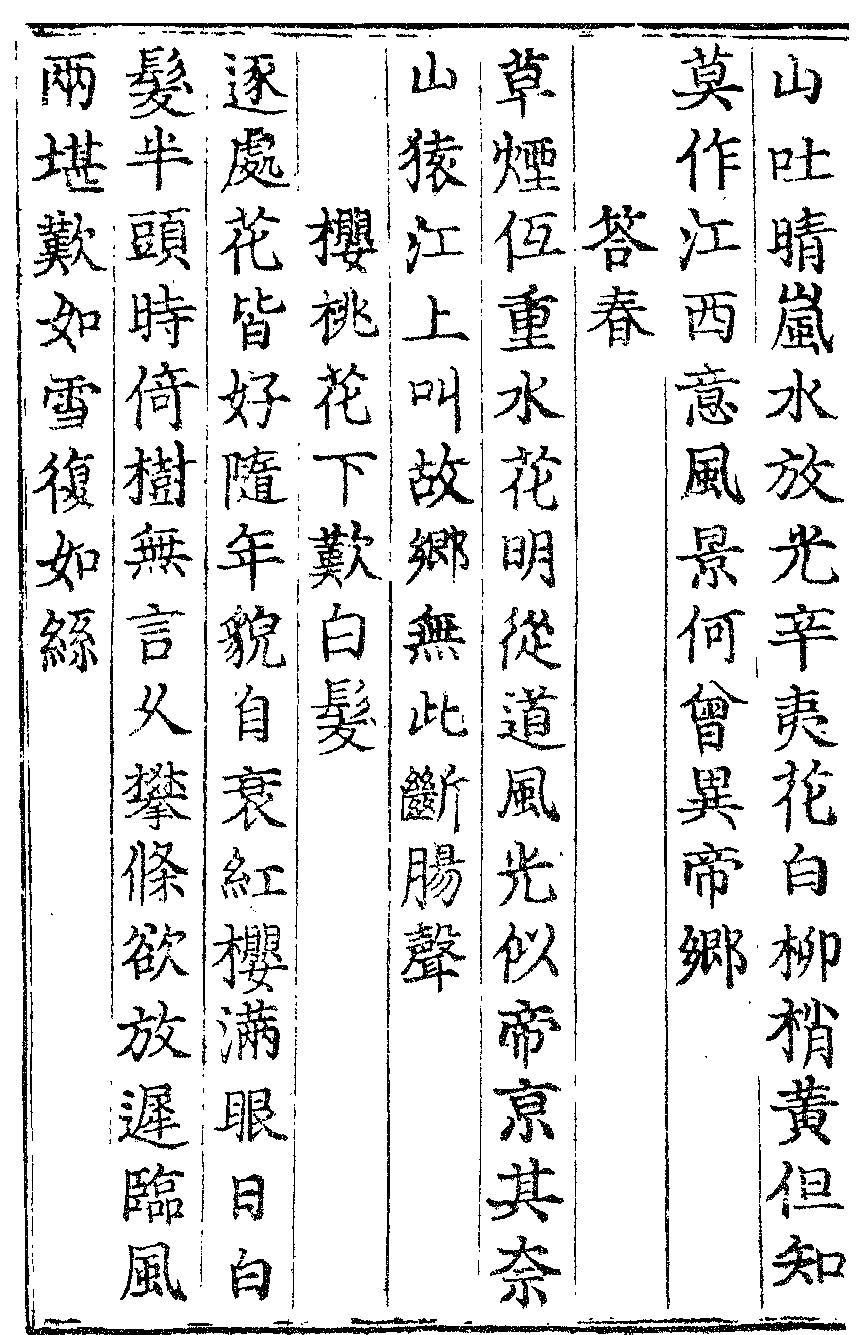 山吐晴嵐水放光辛夷花白柳梢黃但知
莫作江西意風景何曾異帝鄉
答春
草煙低重水花明從道風光似帝京其奈
山猿江上叫故鄉無此斷腸聲
櫻桃花下歎白髮
逐處花皆好隨年貌自衰紅櫻滿眼日白
髮半頭時倚樹無言久攀條欲放遲臨風
兩堪歎如雪復如絲